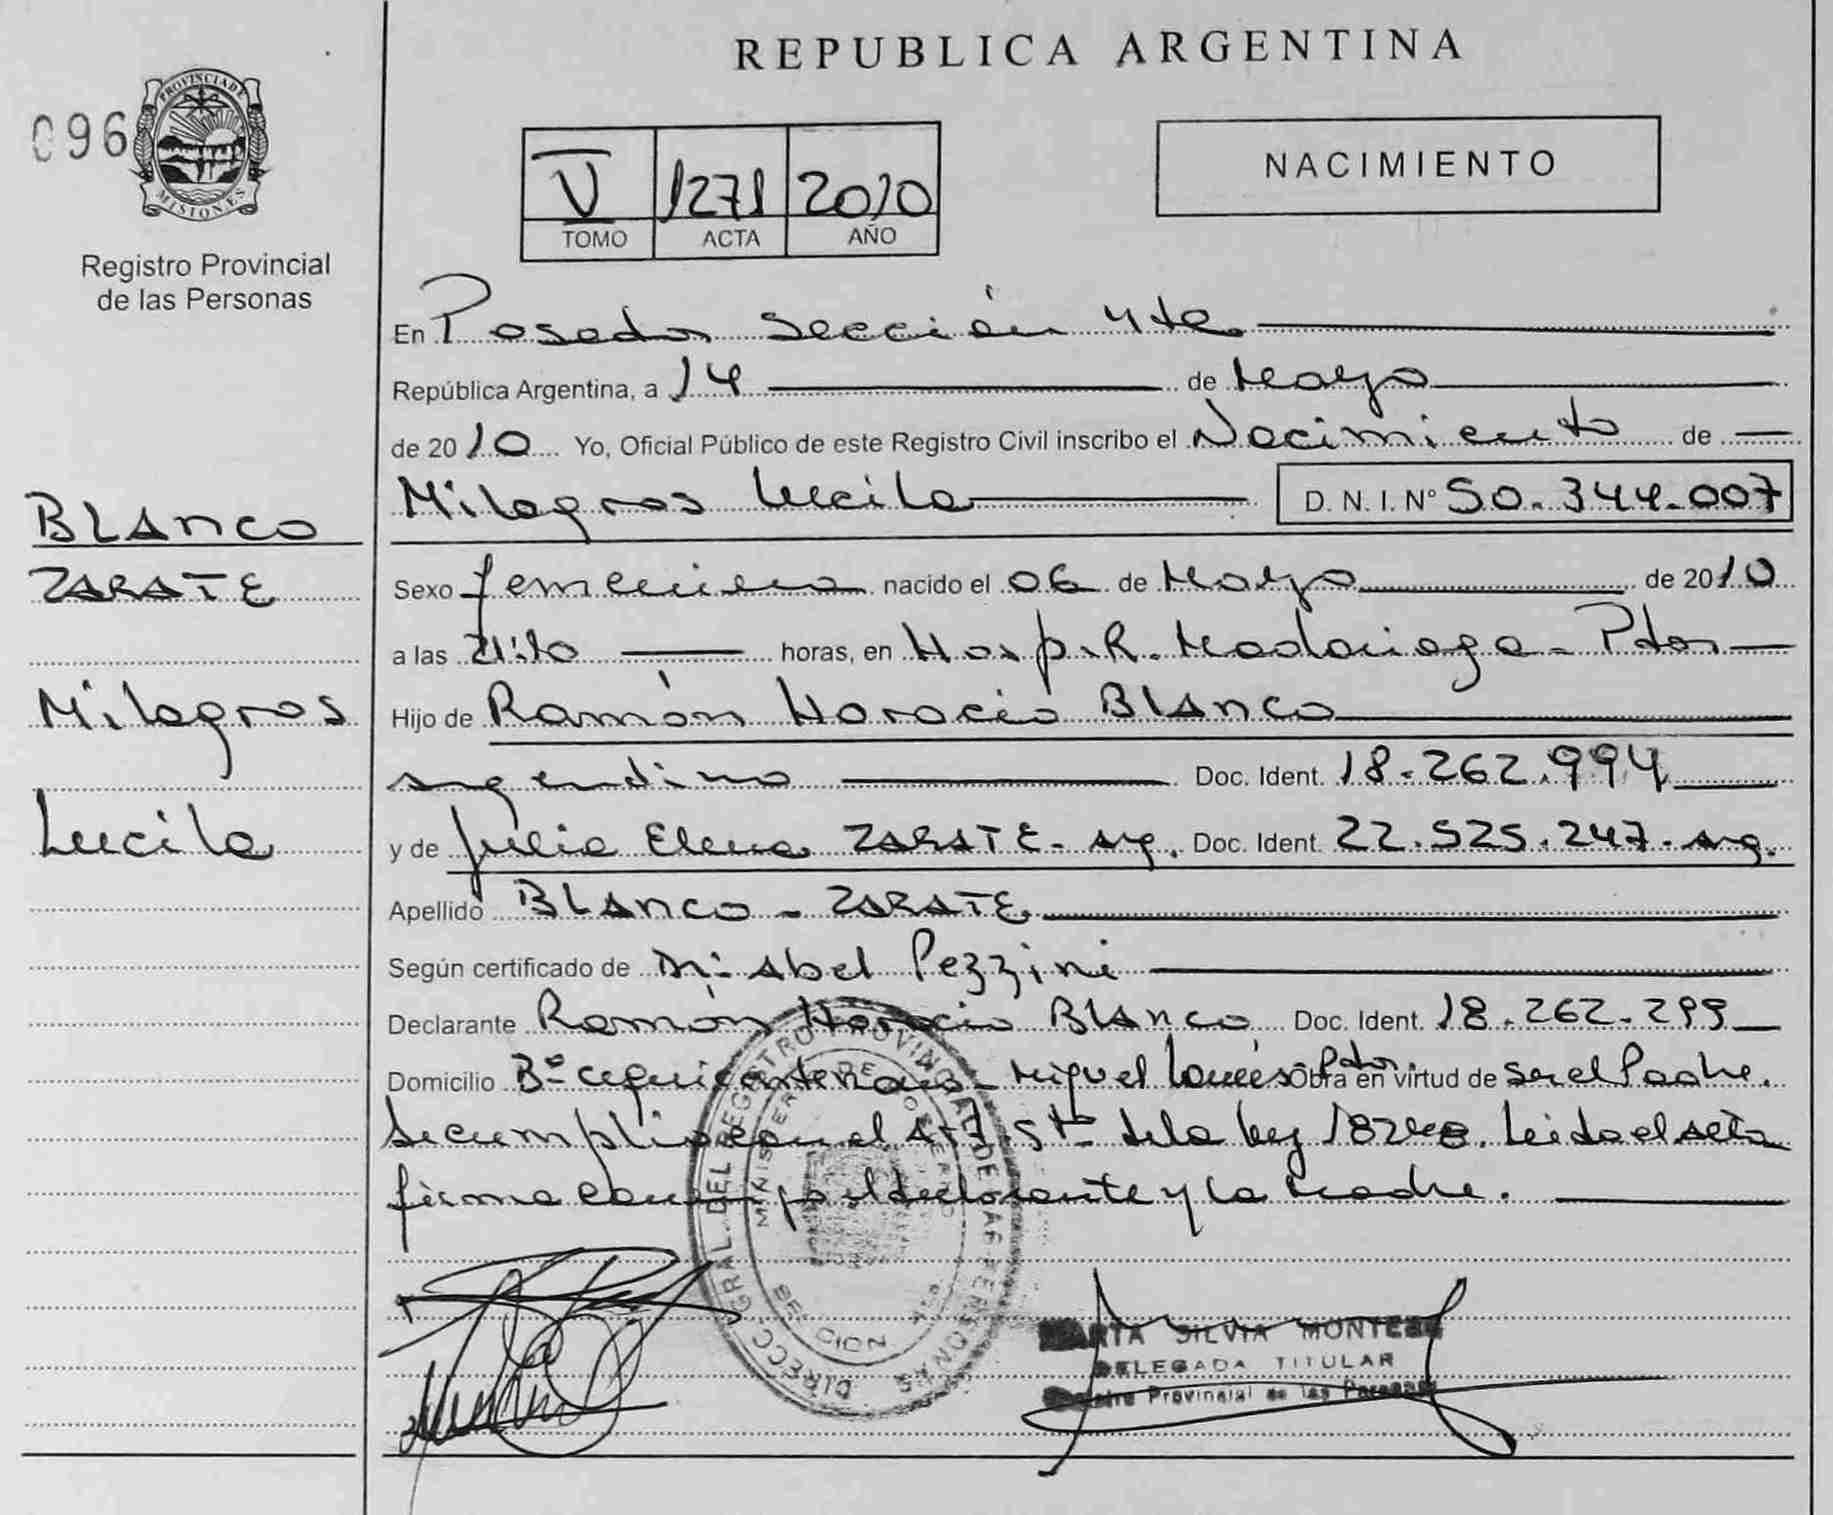 REPUBLICA ARGENTINA
096
PROVINCIA DE
MISIONES
Registro Provincial
de las Personas
NACIMIENTO
V 1271 2010
TOMO ACTA AÑO
En Posadas Sección 4ta
República Argentina, a 14 de Mayo
de 2010 Yo, Oficial Público de este Registro Civil inscribo el Nacimiento de
Milagros Lucila D. N. I. N° 50.344.007
BLANCO
ZARATE
Milagros
Lucila
Sexo femenino nacido el 06 de Mayo de 2010
a las 21:10 horas, en Hosp. R. Madariaga - Pdas
Hijo de Ramón Horacio BLANCO
argentino Doc. Ident. 18.262.994
y de Julia Elena ZARATE - arg. Doc. Ident. 22.525.247 - arg.
Apellido BLANCO - ZARATE
Según certificado de Dr. Abel Pezzini
Declarante Ramón Horacio BLANCO Doc. Ident. 18.262.299
Domicilio Bº - Miguel Pdas. Obra en virtud de ser el Padre.
Se cumplió con el Art. 5to de la Ley 18248. Leida el acta
firma conmigo el declarante y la madre.
DIRECC. GRAL. DEL REGISTRO PROVINCIAL DE LAS PERSONAS
MINISTERIO DE GOBIERNO
SECCION 4ta
MARTA SILVIA MONTES
DELEGADA TITULAR
Registro Provincial de las Personas